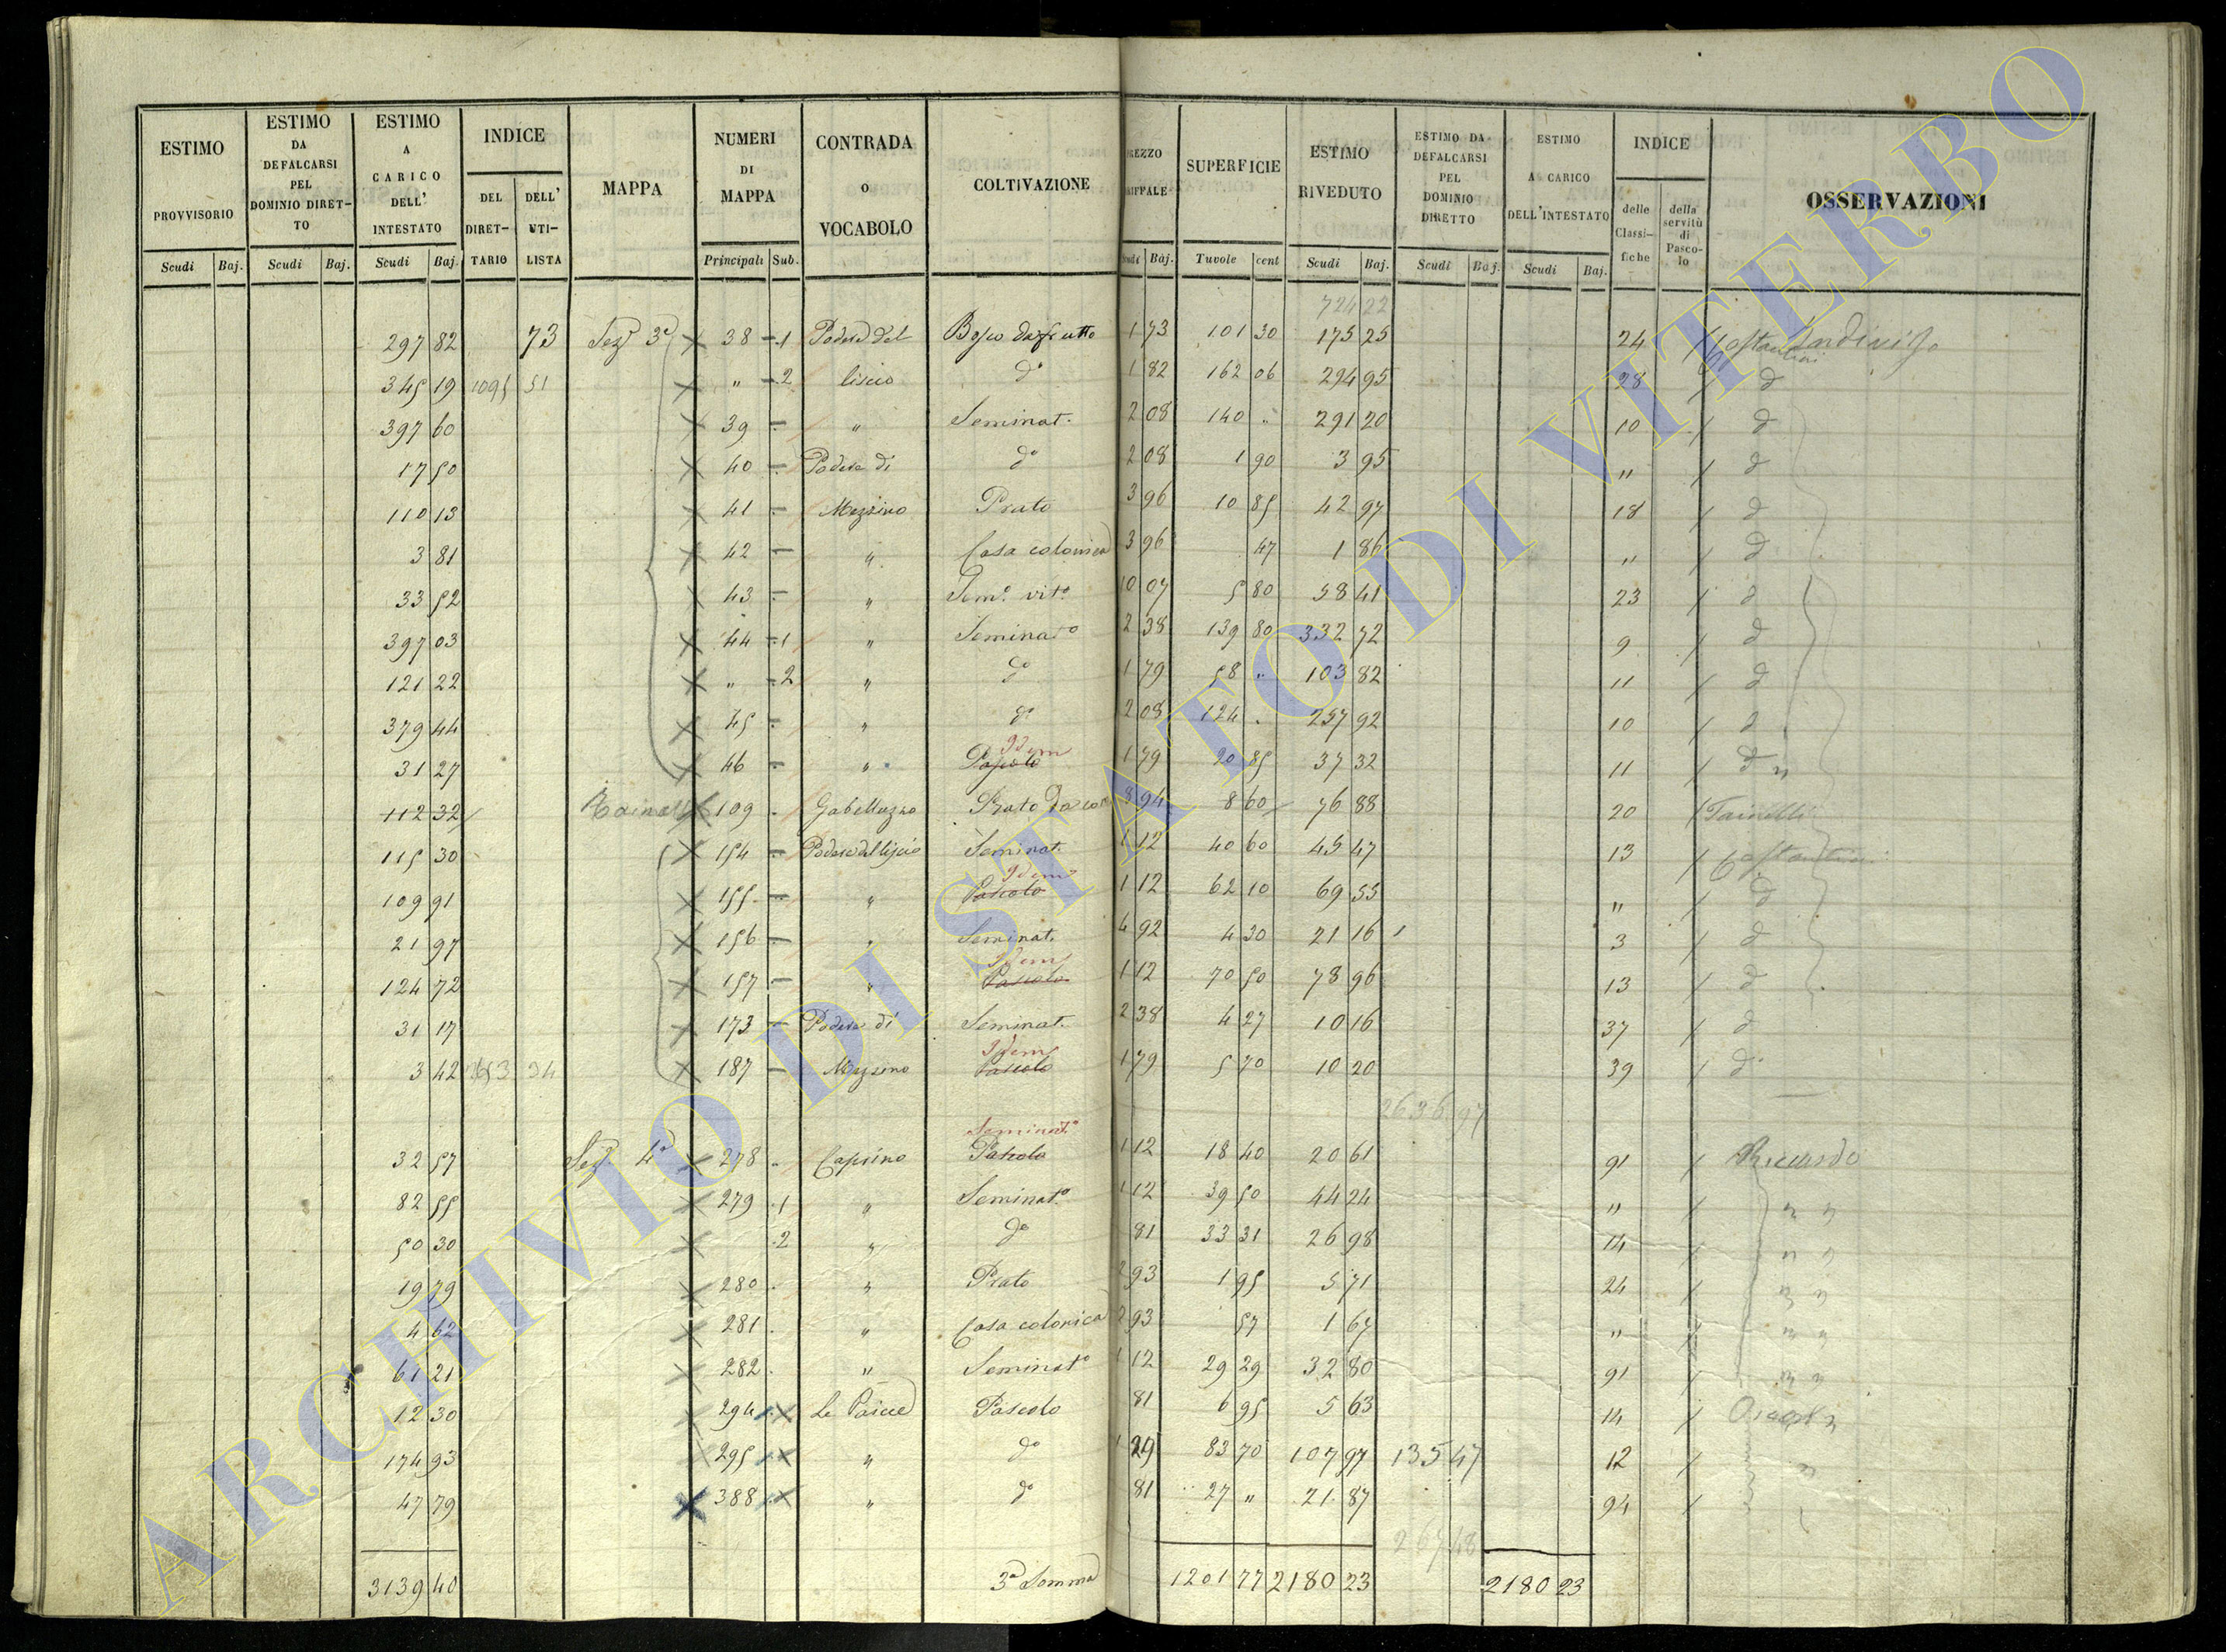 ESTIMO PROVVISORIO
ESTIMO DA DEFALCARSI PEL DOMINIO DIRET-TO
ESTIMO A CARICO DELL' INTESTATO
INDICE
DEL DIRET-TARIO
DELL' UTI-LISTA
MAPPA
NUMERI DI MAPPA
CONTRADA o VOCABOLO
COLTIVAZIONE
SUPERFICIE
ESTIMO RIVEDUTO
ESTIMO DA DEFALCARSI PEL DOMINIO DIRETTO
ESTIMO A CARICO DELL'INTESTATO
INDICE
delle Classi-fiche
della servitù di Pasco-lo
OSSERVAZIONI
Scudi Baj. Scudi Baj. Scudi Baj. Principali Sub. Baj. Tavole cent Scudi Baj. Scudi Baj. Scudi Baj.
724 22
297 82 73 Sez 3ª 38 1 Podere del Bosco da frutto 1 73 101 30 175 25 24 Costantini Indiviso
345 19 1095 51 " 2 liscio dº 1 82 162 06 294 95 28 d
397 60 39 " Seminat. 2 08 140 " 291 20 10 d
17 50 40 Podere di dº 2 08 1 90 3 95 " d
110 13 41 Mezzino Prato 3 96 10 85 42 97 18 d
3 81 42 " Casa colonica 3 96 47 1 86 " d
33 52 43 " Semº vitº 10 07 5 80 58 41 23 d
397 03 44 1 " Seminatº 2 38 139 80 332 72 9 d
121 22 " 2 " dº 1 79 58 " 103 82 11 d
379 44 45 " dº 2 08 124 257 92 10 d
31 27 46 " Pascolo Idem 1 79 20 85 37 32 11 d "
112 32 109 Prato 8 94 8 60 76 88 20
115 30 154 Podere del liscio Seminat. 1 12 40 60 45 47 13 Costantini
109 91 155 " Pascolo Idem 1 12 62 10 69 55 " d
21 97 156 " Seminat. 4 92 4 30 21 16 3 d
124 72 157 " Pascolo Idem 1 12 70 50 78 96 13 d
31 17 173 Podere di Seminat. 2 38 4 27 10 16 37 d
3 42 187 Mezzino Pascolo Idem 1 79 5 70 10 20 39 d
2636 97
32 57 Sez 4ª 278 Caprino Pascolo Seminatº 1 12 18 40 20 61 91
82 55 279 1 " Seminatº 1 12 39 50 44 24 " " "
50 30 2 " dº 81 33 31 26 98 14 " "
19 79 280 " Prato 2 93 1 95 5 71 24 " "
4 62 281 " Casa colonica 2 93 57 1 67 " " "
61 21 282 " Seminatº 1 12 29 29 32 80 91 " "
12 30 294 Pascolo 81 6 95 5 63 14
174 93 295 " dº 1 29 83 70 107 97 135 47 12 "
47 79 388 " dº 81 27 " 21 87 94
267 48
3139 40 3ª Somma 1201 77 2180 23 2180 23
ARCHIVIO DI STATO DI VITERBO